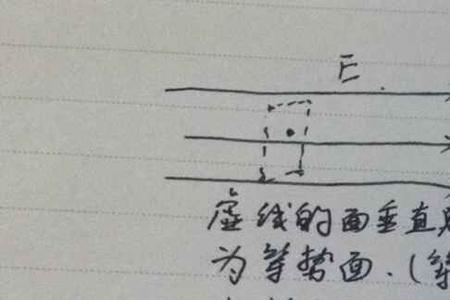 E
虚线的面垂直
为等势面.(等